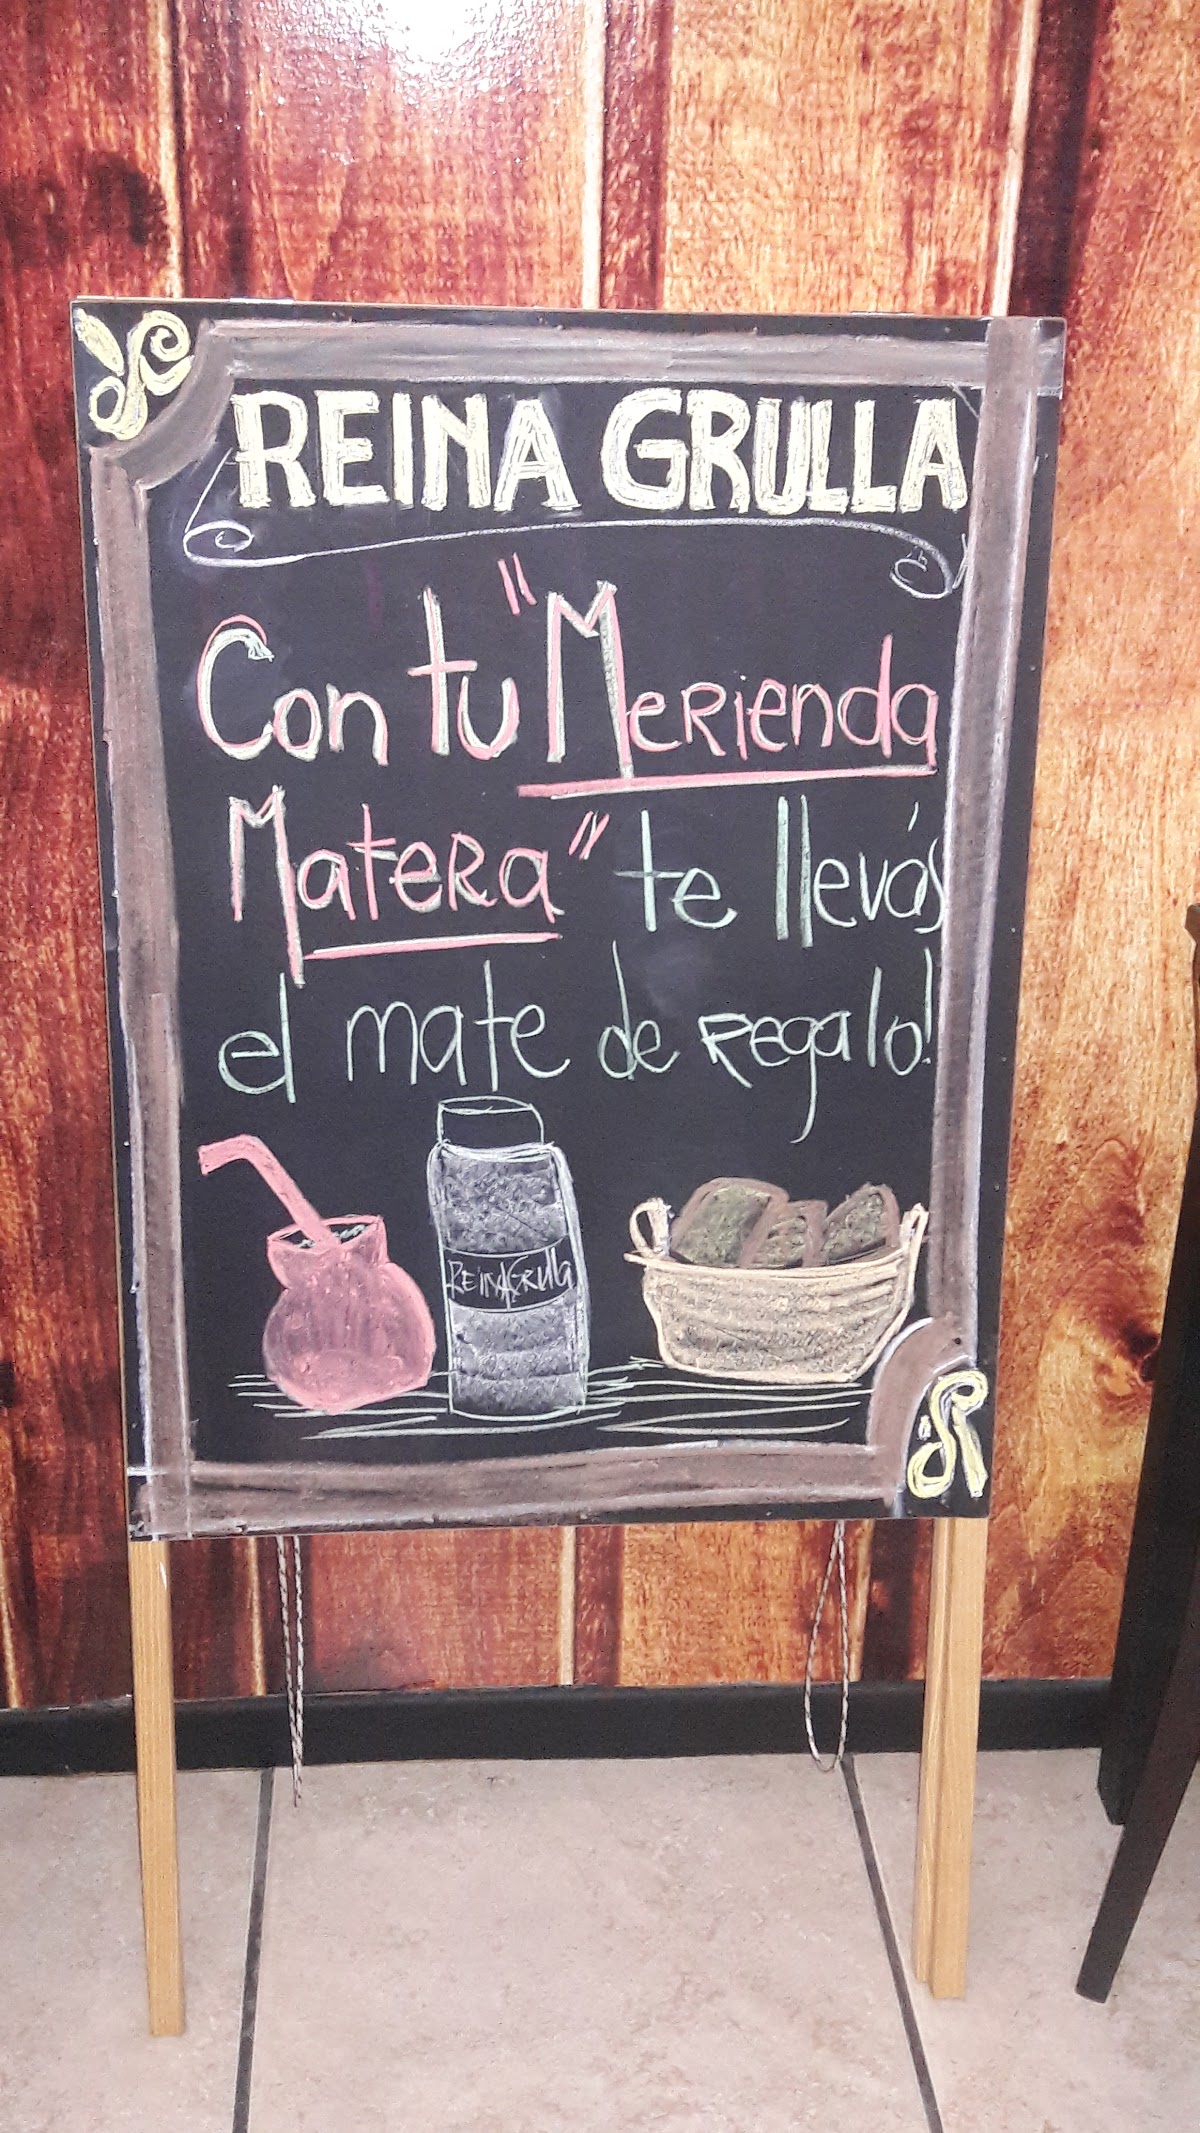 REINA GRULLA
Con tu "Merienda
Matera" te llevás
el mate de regalo!
ReinaGrulla